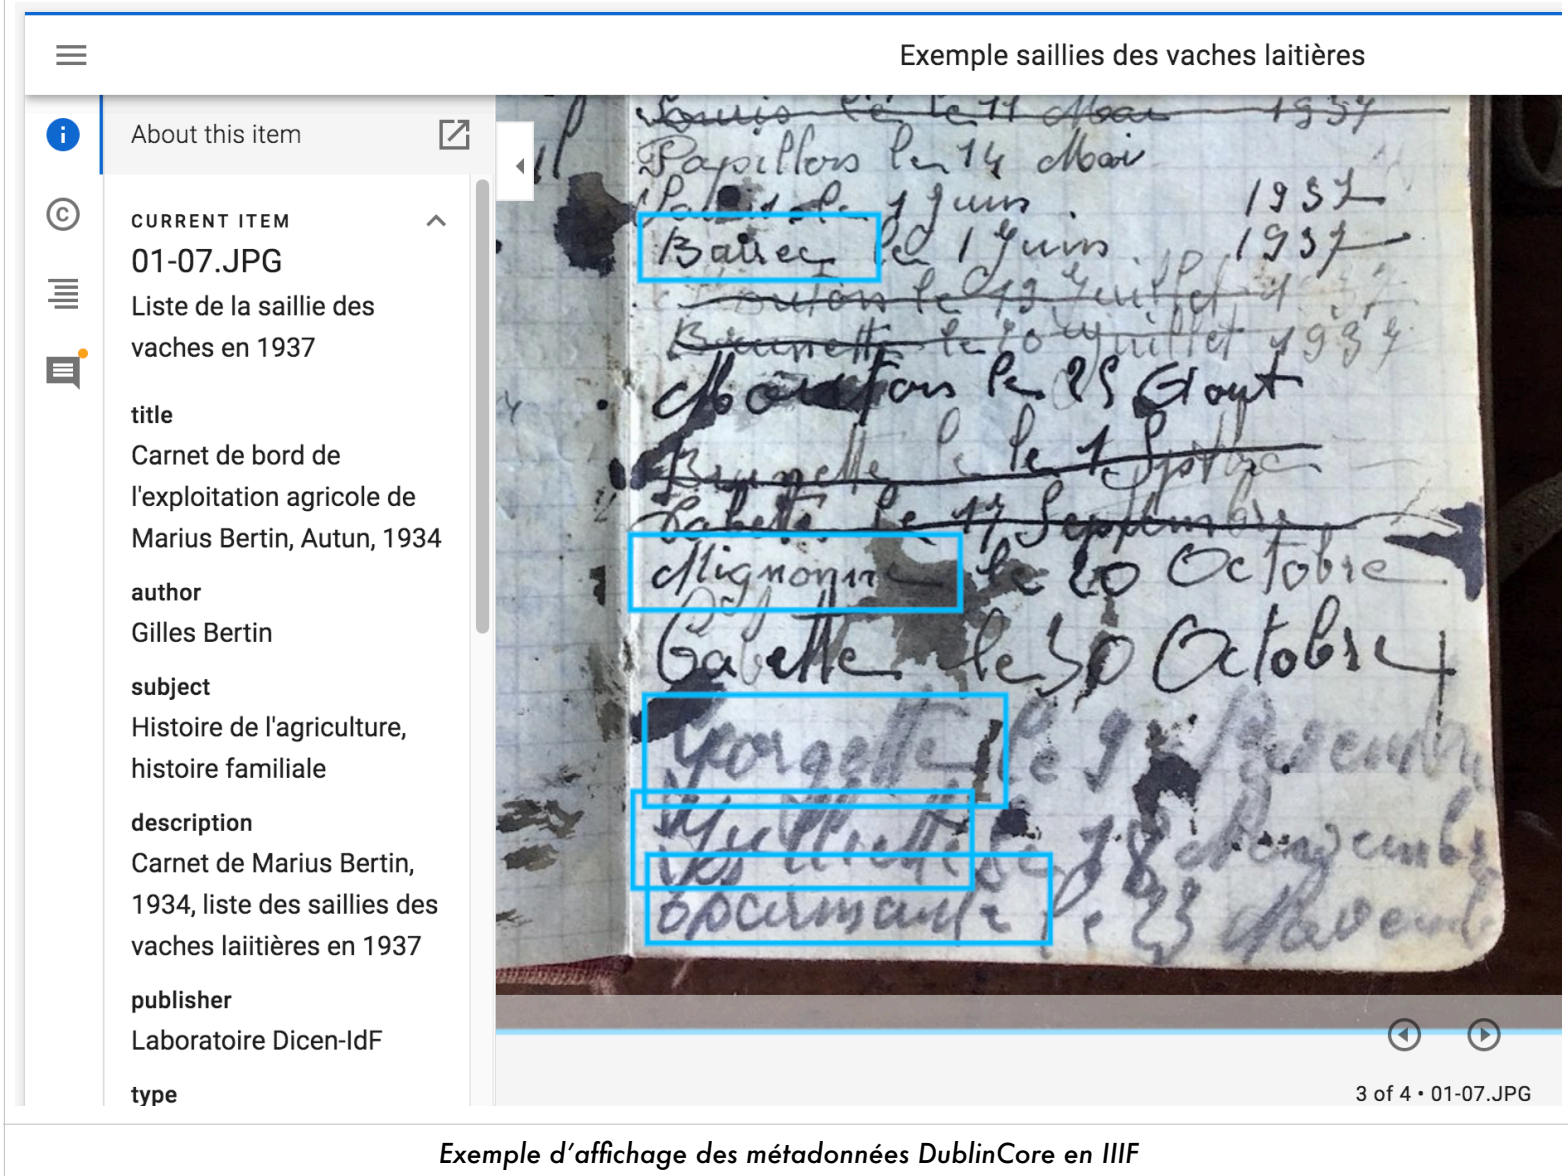 Exemple saillies des vaches laitières
About this item
CURRENT ITEM
01-07.JPG
Liste de la saillie des
vaches en 1937
title
Carnet de bord de
l'exploitation agricole de
Marius Bertin, Autun, 1934
author
Gilles Bertin
subject
Histoire de l'agriculture,
histoire familiale
description
Carnet de Marius Bertin,
1934, liste des saillies des
vaches laiitières en 1937
publisher
Laboratoire Dicen-IdF
type
le 11 Mai 1937
Papillons le 14 Mai
le 1 Juin 1937
le 1 Juin 1937
le 19 Juillet
Brunette le 20 Juillet 1937
Moutons le 25 Aout
Brunette le 1 Septbre
le 17 Septembre
Mignonne le 20 Octobre
Gabette le 30 Octobre
Georgette le 9
le 18
le 23
3 of 4 • 01-07.JPG
Exemple d'affichage des métadonnées DublinCore en IIIF